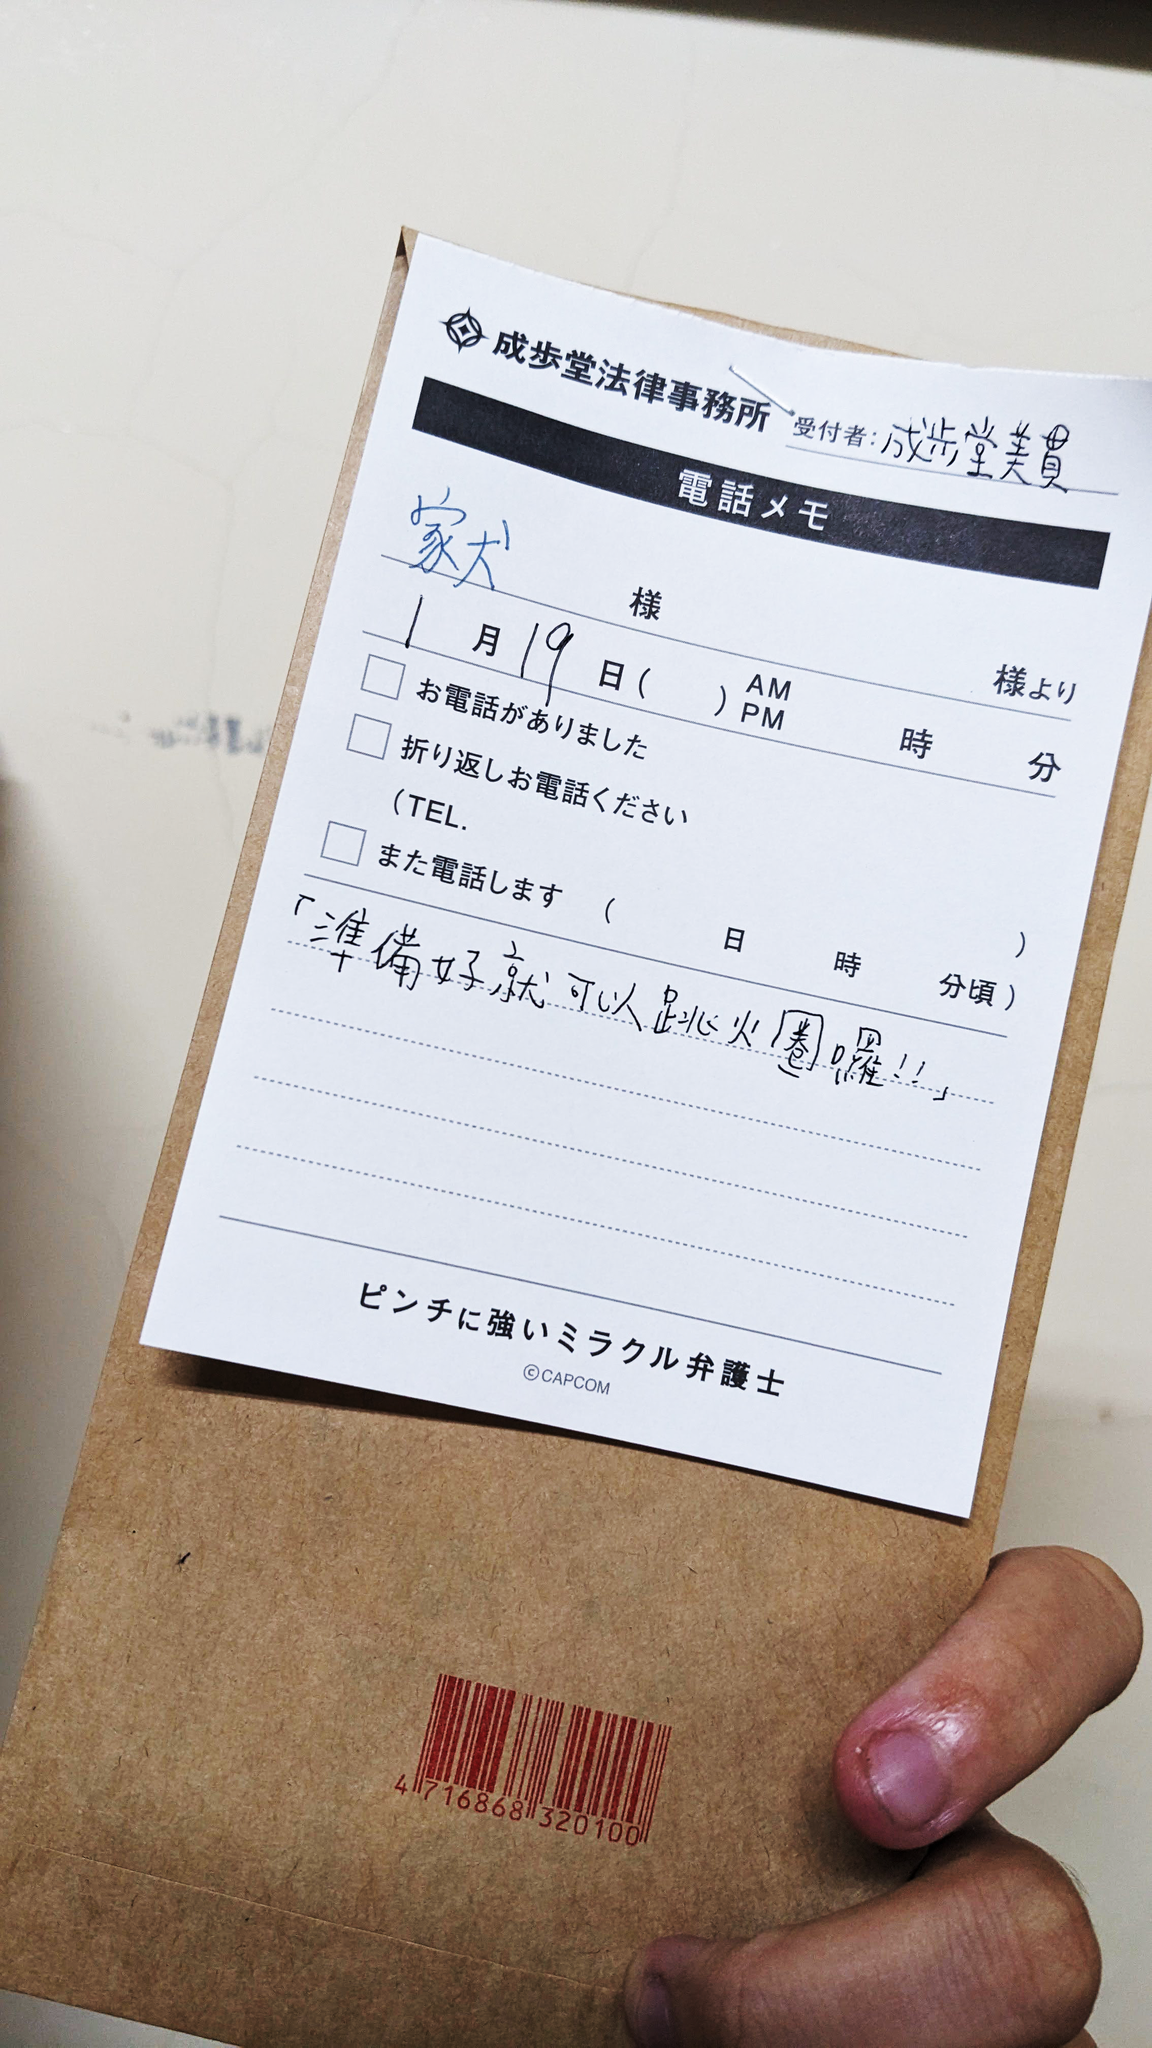 成歩堂法律事務所
受付者:成歩堂美貫
電話メモ
家犬 様
様より
1月19日( ) AM PM 時 分
お電話がありました
折り返しお電話ください
(TEL. )
また電話します ( 日 時 分頃)
「準備好就可以跳火圈囉!!」
ピンチに強いミラクル弁護士
©CAPCOM
4 716868 320100